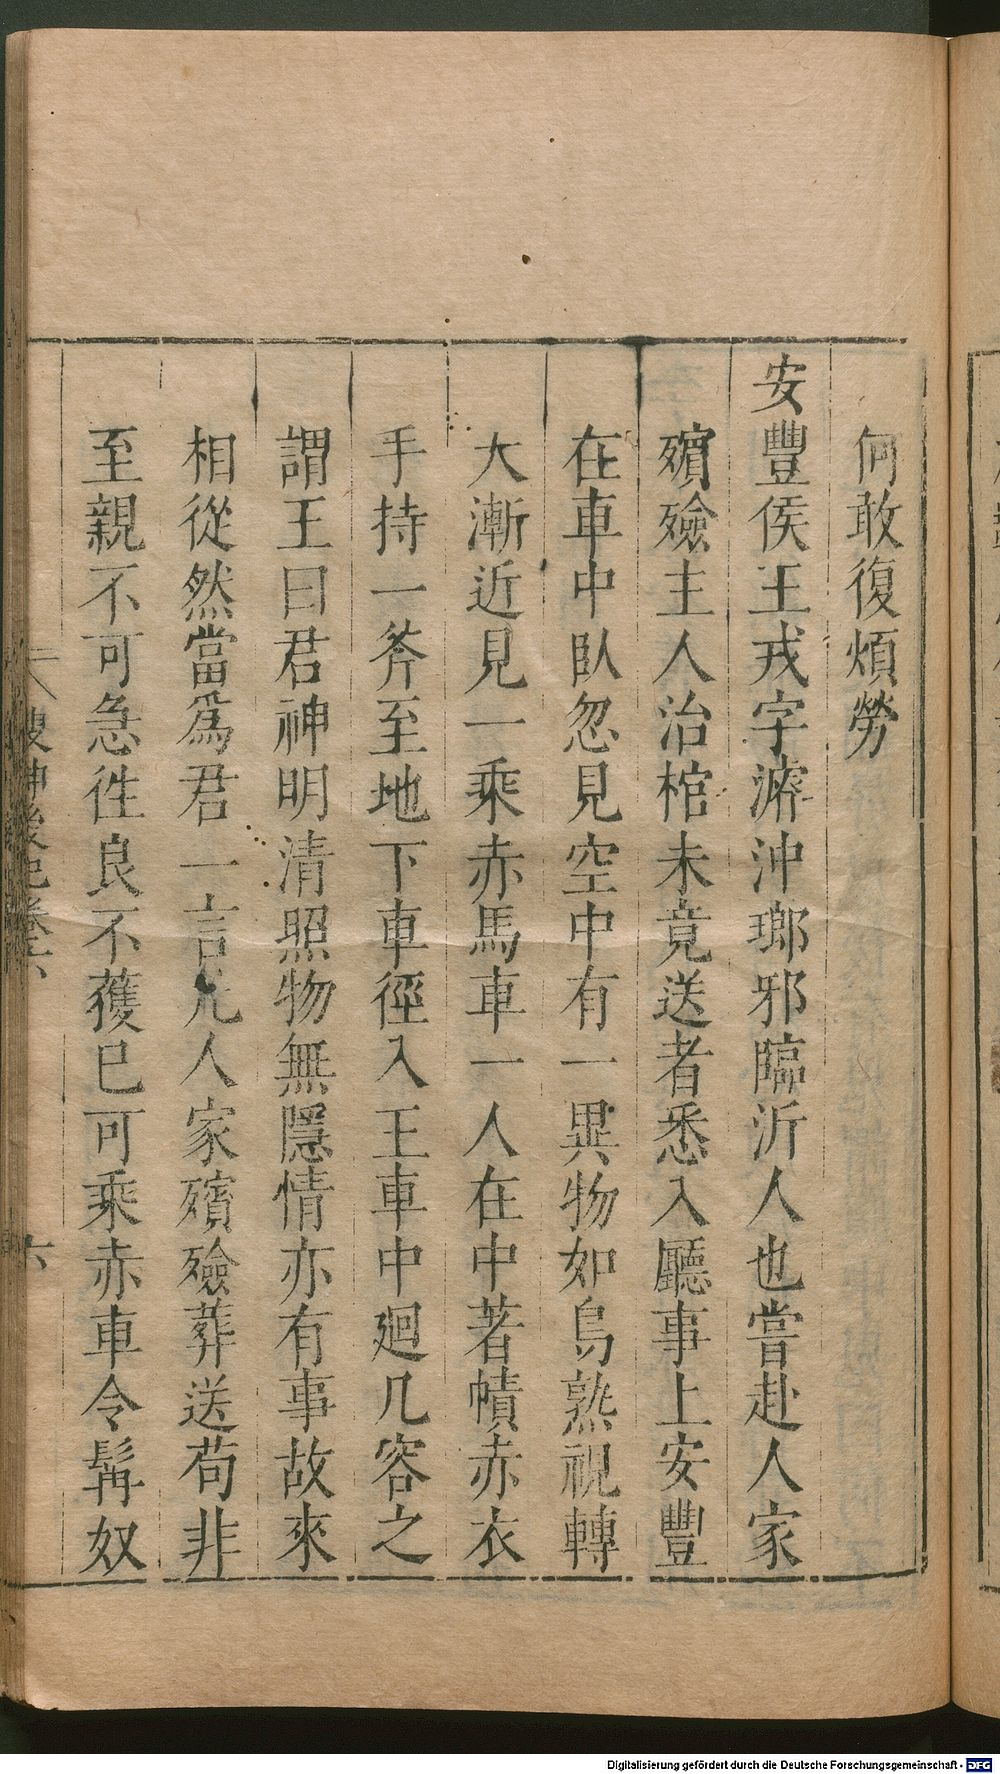 何敢復煩勞
安豐侯王戎字濬沖瑯邪臨沂人也嘗赴人家
殯殮主人治棺未竟送者悉入廳事上安豐
在車中臥忽見空中有一異物如鳥熟視轉
大漸近見一乘赤馬車一人在中著幘赤衣
手持一斧至地下車徑入王車中廻几容之
謂王曰君神明清照物無隱情亦有事故來
相從然當爲君一言凡人家殯殮葬送苟非
至親不可急徃良不獲已可乘赤車令髯奴
搜神後記卷六
六
Digitalisierung gefördert durch die Deutsche Forschungsgemeinschaft - DFG